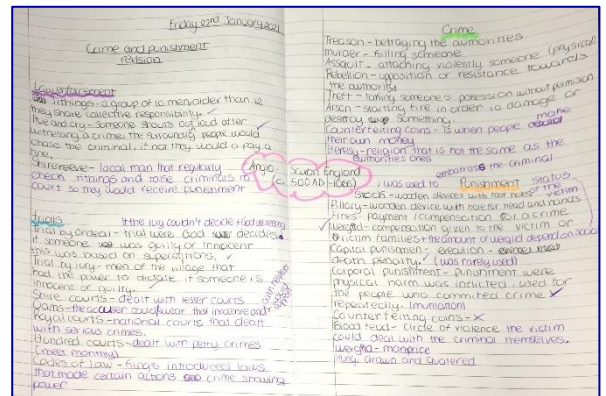 Friday 22nd January 2021
Crime and punishment
revision
Law enforcement
Tithings - a group of 10 men, older than 12
they share collective responsibility.
Hue and cry - someone should out loud after
witnesing a crime, the surrounding people would
chase the criminal, if not they would a pay a
fine.
Shirereeve - local man that regularly
check tithings and take criminals to
court so they would receive punishment
Anglo-Saxon England
(c. 500 AD - 1060)
Trials
If the jury couldn't decide + God all seeing
Trial by ordeal - trial were God decides
if someone was guilty or innocent
this was based on superstitions.
Trial by jury - men of the village that
had the power to dictate if someone is
innocent or guilty.
Shire courts - dealt with lesser courts
Oaths - the accuser could swear their innocence and
Royal courts - national courts that dealt
with serious crimes.
Hundred courts - dealt with petty crimes
(meet monthly)
Codes of law - kings introduced laws
that made certain actions crime showing
power
Crime
Treason - betraying the authorities
Murder - killing someone
Assault - attaching violently someone (physical)
Rebellion - opposition or resistance towards
the authority
Theft - taking someone's possession without permission
Arson - starting fire in order to damage or
destroy something.
Counterfeiting coins - is when people make
their own money
Heresy - religion that is not the same as the
authorities ones
embarrass the criminal
was used to
Punishment
Stocks - wooden devices with foot holes
Pillory - wooden device with hole for head and hands
Fines - payment / compensation for a crime
Wergild - compensation given to the victim or
victim families + the amount of wergild depend on social
status of the victim
Capital punishment -
death penalty. (was rarely used)
Corporal punishment - punishment were
physical harm was inflicted, used for
the people who commited crime
repeatedly.
Counterfeiting coins - x
Blood feud - circle of violence the victim
could deal with the criminal themselves.
Wergild - manprice
Hung drawn and quatered